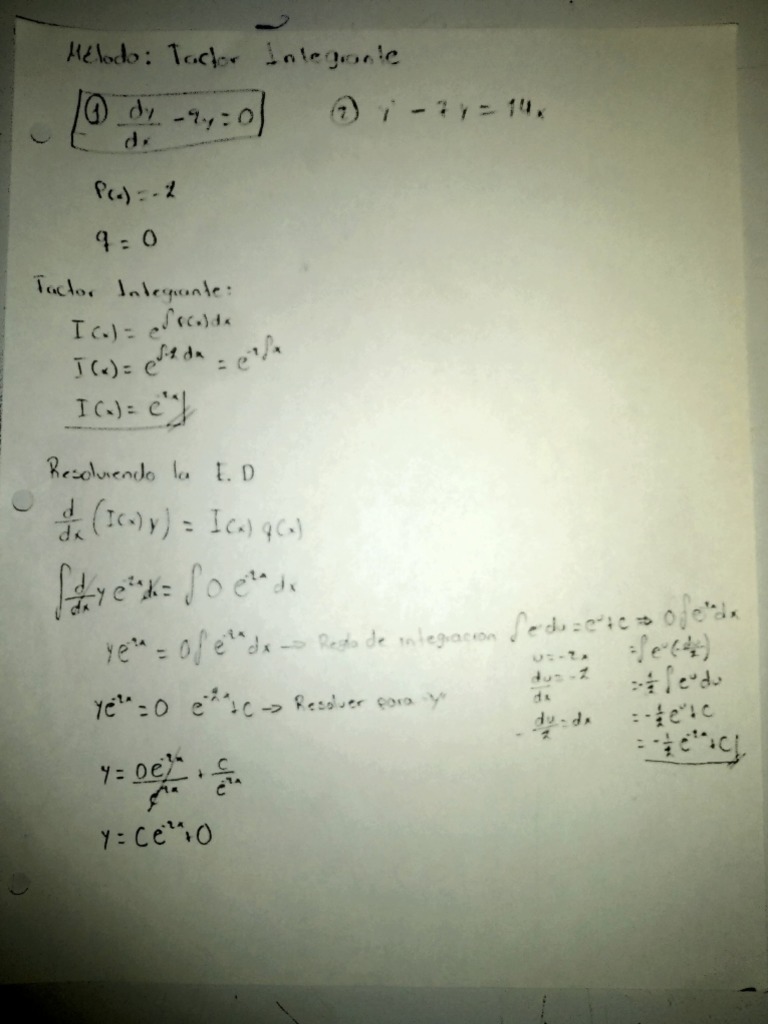 Método: Factor Integrante
① dy/dx - 2y = 0
② y' - 7y = 14x
P(x) = -2
q = 0
Factor Integrante:
I(x) = e^∫P(x)dx
I(x) = e^∫-2 dx = e^-2∫x
I(x) = e^-2x
Resolviendo la E.D
d/dx (I(x) y) = I(x) q(x)
∫ d/dx y e^-2x dx = ∫ 0 e^-2x dx
ye^-2x = 0∫e^-2x dx → Regla de integracion ∫e^u du = e^u + C ⇒ 0∫e^-2x dx
u = -2x = ∫e^u (-du/2)
du/dx = -2 = -1/2 ∫e^u du
- du/2 = dx = -1/2 e^u + C
= -1/2 e^-2x + C
ye^-2x = 0 e^-2x + C → Resolver para "y"
y = 0e^-2x/e^-2x + C/e^-2x
y = Ce^-2x + 0